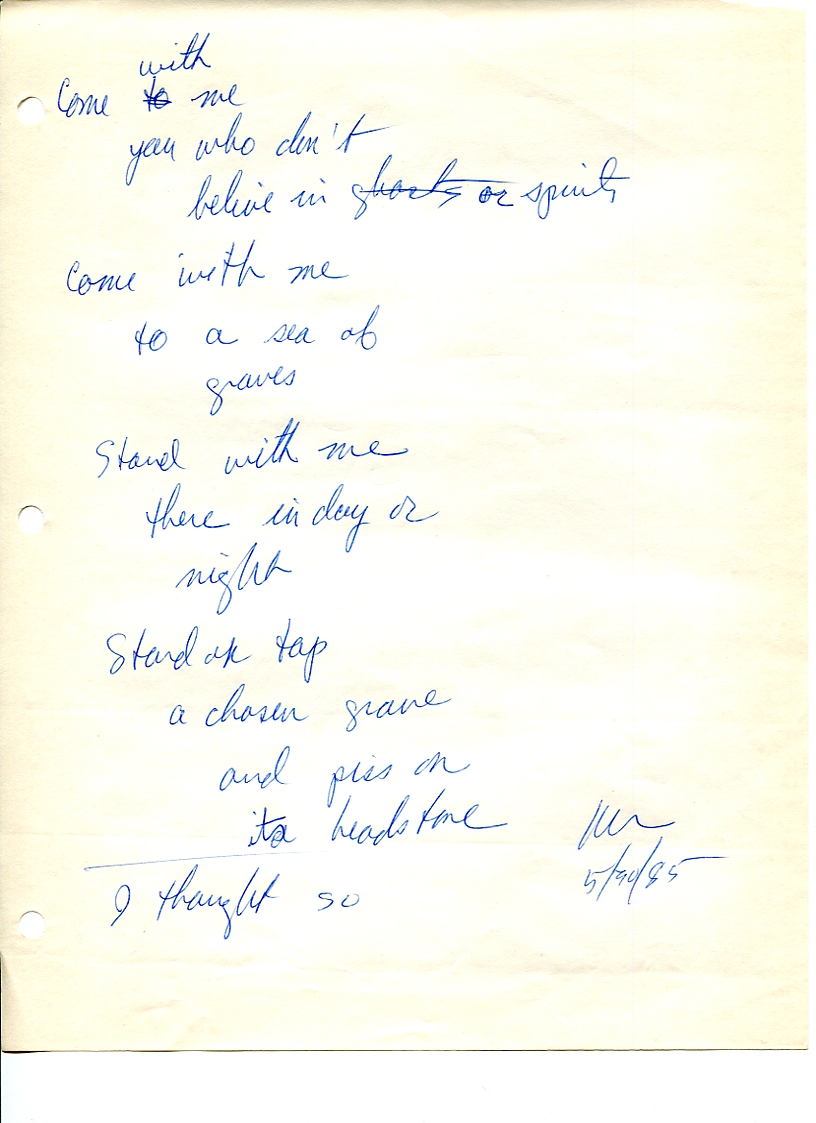 with
Come to me
you who don't
belive in ghosts or spirits
Come with me
to a sea of
graves
Stand with me
there in day or
night
Stand on top
a chosen grave
and piss on
its headstone
I thought so
5/30/85